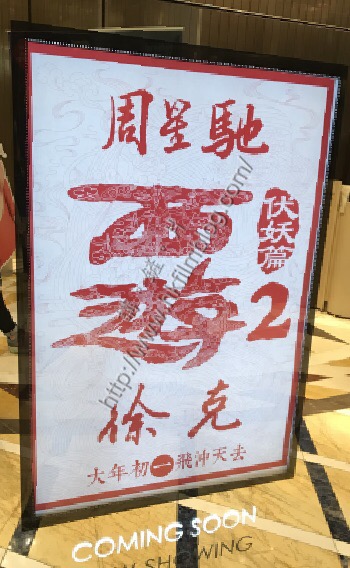 周星馳
西遊
伏妖篇
2
徐克
大年初一飛沖天去
COMING SOON
SHOWING
http://www.hkfilmblog.com/